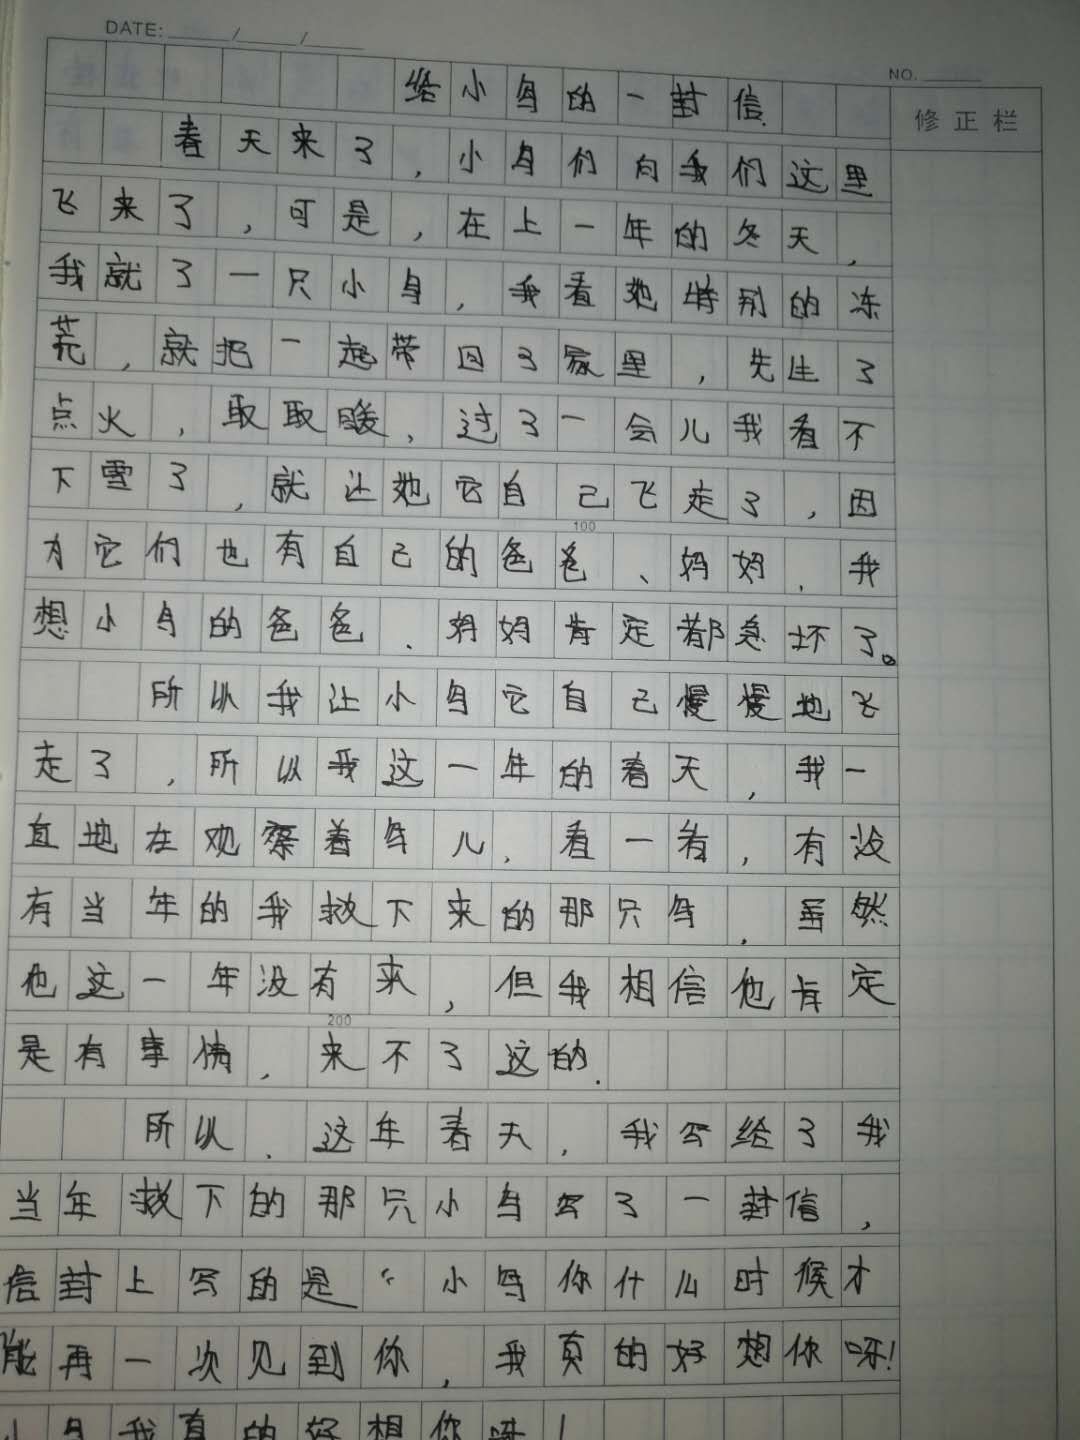 DATE: ____/____/____
NO. ____
修正栏
给小鸟的一封信.
春天来了,小鸟们向我们这里
飞来了,可是,在上一年的冬天,
我就了一只小鸟,我看她特别的冻
荒,就把一起带回了家里,先生了
点火,取取暖,过了一会儿我看不
下雪了,就让她它自己飞走了,因
为它们也有自己的爸爸、妈妈,我
100
想小鸟的爸爸、妈妈肯定都急坏了。
所以我让小鸟它自己慢慢地飞
走了,所以我这一年的春天,我一
直地在观察着鸟儿,看一看,有没
有当年的我救下来的那只鸟,虽然
他这一年没有来,但我相信他肯定
200
是有事情,来不了这的.
所以、这年春天,我写给了我
当年救下的那只小鸟写了一封信,
信封上写的是“小鸟你什么时候才
能再一次见到你,我真的好想你呀!
小鸟我真的好想你呀!